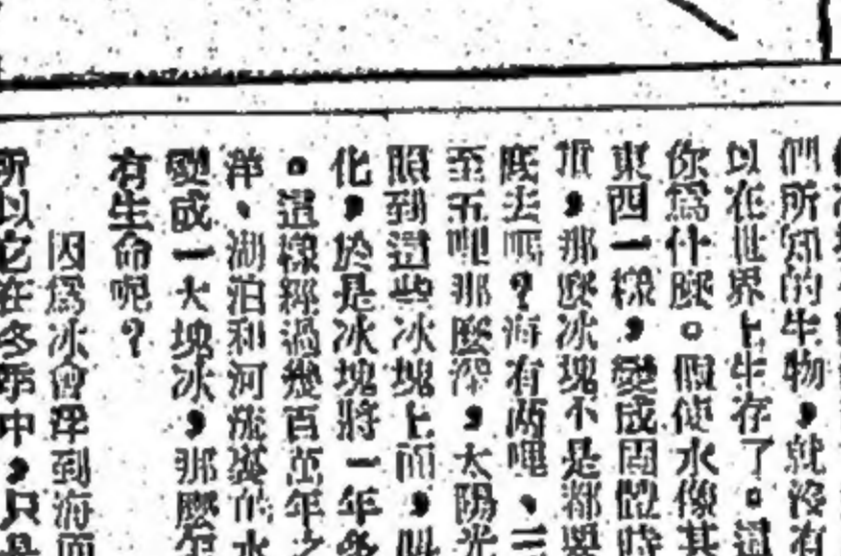 們所知的生物，就沒有
以在世界上生存了。這
你爲什麼。假使水像其
東西一樣，變成固體時
頂，那麼冰塊不是都要
底去嗎？海有兩哩、三
至五哩那麼深，太陽光
照到這些冰塊上面，
化，於是冰塊將一年
。這樣經過幾百萬年之
洋、湖泊和河流裏的水
變成一大塊冰，那麼怎
有生命呢？
因爲冰會浮到海面
所以它在冬季中，只是